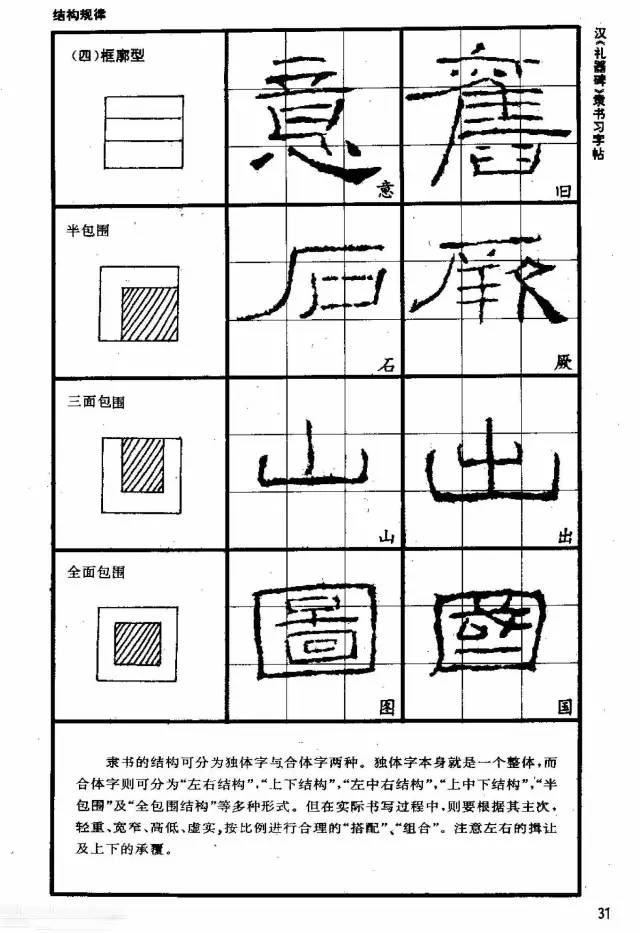 结构规律
汉《礼器碑》隶书习字帖
(四)框廓型
意
旧
半包围
石
厥
三面包围
山
出
全面包围
图
国
隶书的结构可分为独体字与合体字两种。独体字本身就是一个整体,而
合体字则可分为“左右结构”,“上下结构”,“左中右结构”,“上中下结构”,“半
包围”及“全包围结构”等多种形式。但在实际书写过程中,则要根据其主次,
轻重、宽窄、高低、虚实,按比例进行合理的“搭配”、“组合”。注意左右的揖让
及上下的承覆。
31